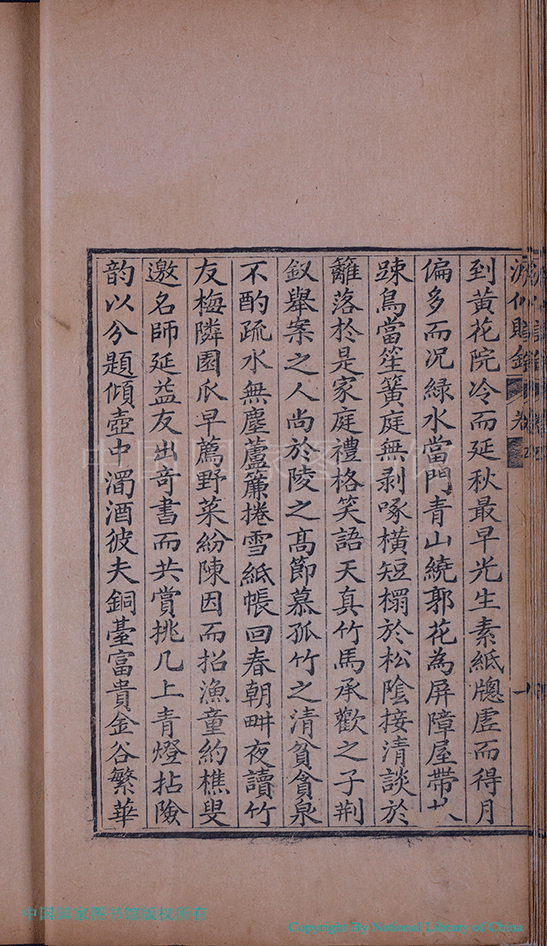 到黃花院冷而延秋最早光生素紙牕虛而得月
偏多而况綠水當門青山繞郭花為屏障屋帶
踈鳥當笙簧庭無剥啄橫短榻於松陰接清談於
籬落於是家庭禮格笑語天真竹馬承歡之子荆
釵舉案之人尚於陵之髙節慕孤竹之清貧貪泉
不酌疏水無塵蘆簾捲雪紙帳回春朝畊夜讀竹
友梅隣園瓜早薦野菜紛陳因而招漁童約樵叟
邀名師延益友出奇書而共賞挑几上青燈拈險
韵以分題傾壺中濁酒彼夫銅臺富貴金谷繁華
中国国家图书馆
中国国家图书馆版权所有
Copyright By National Library of China